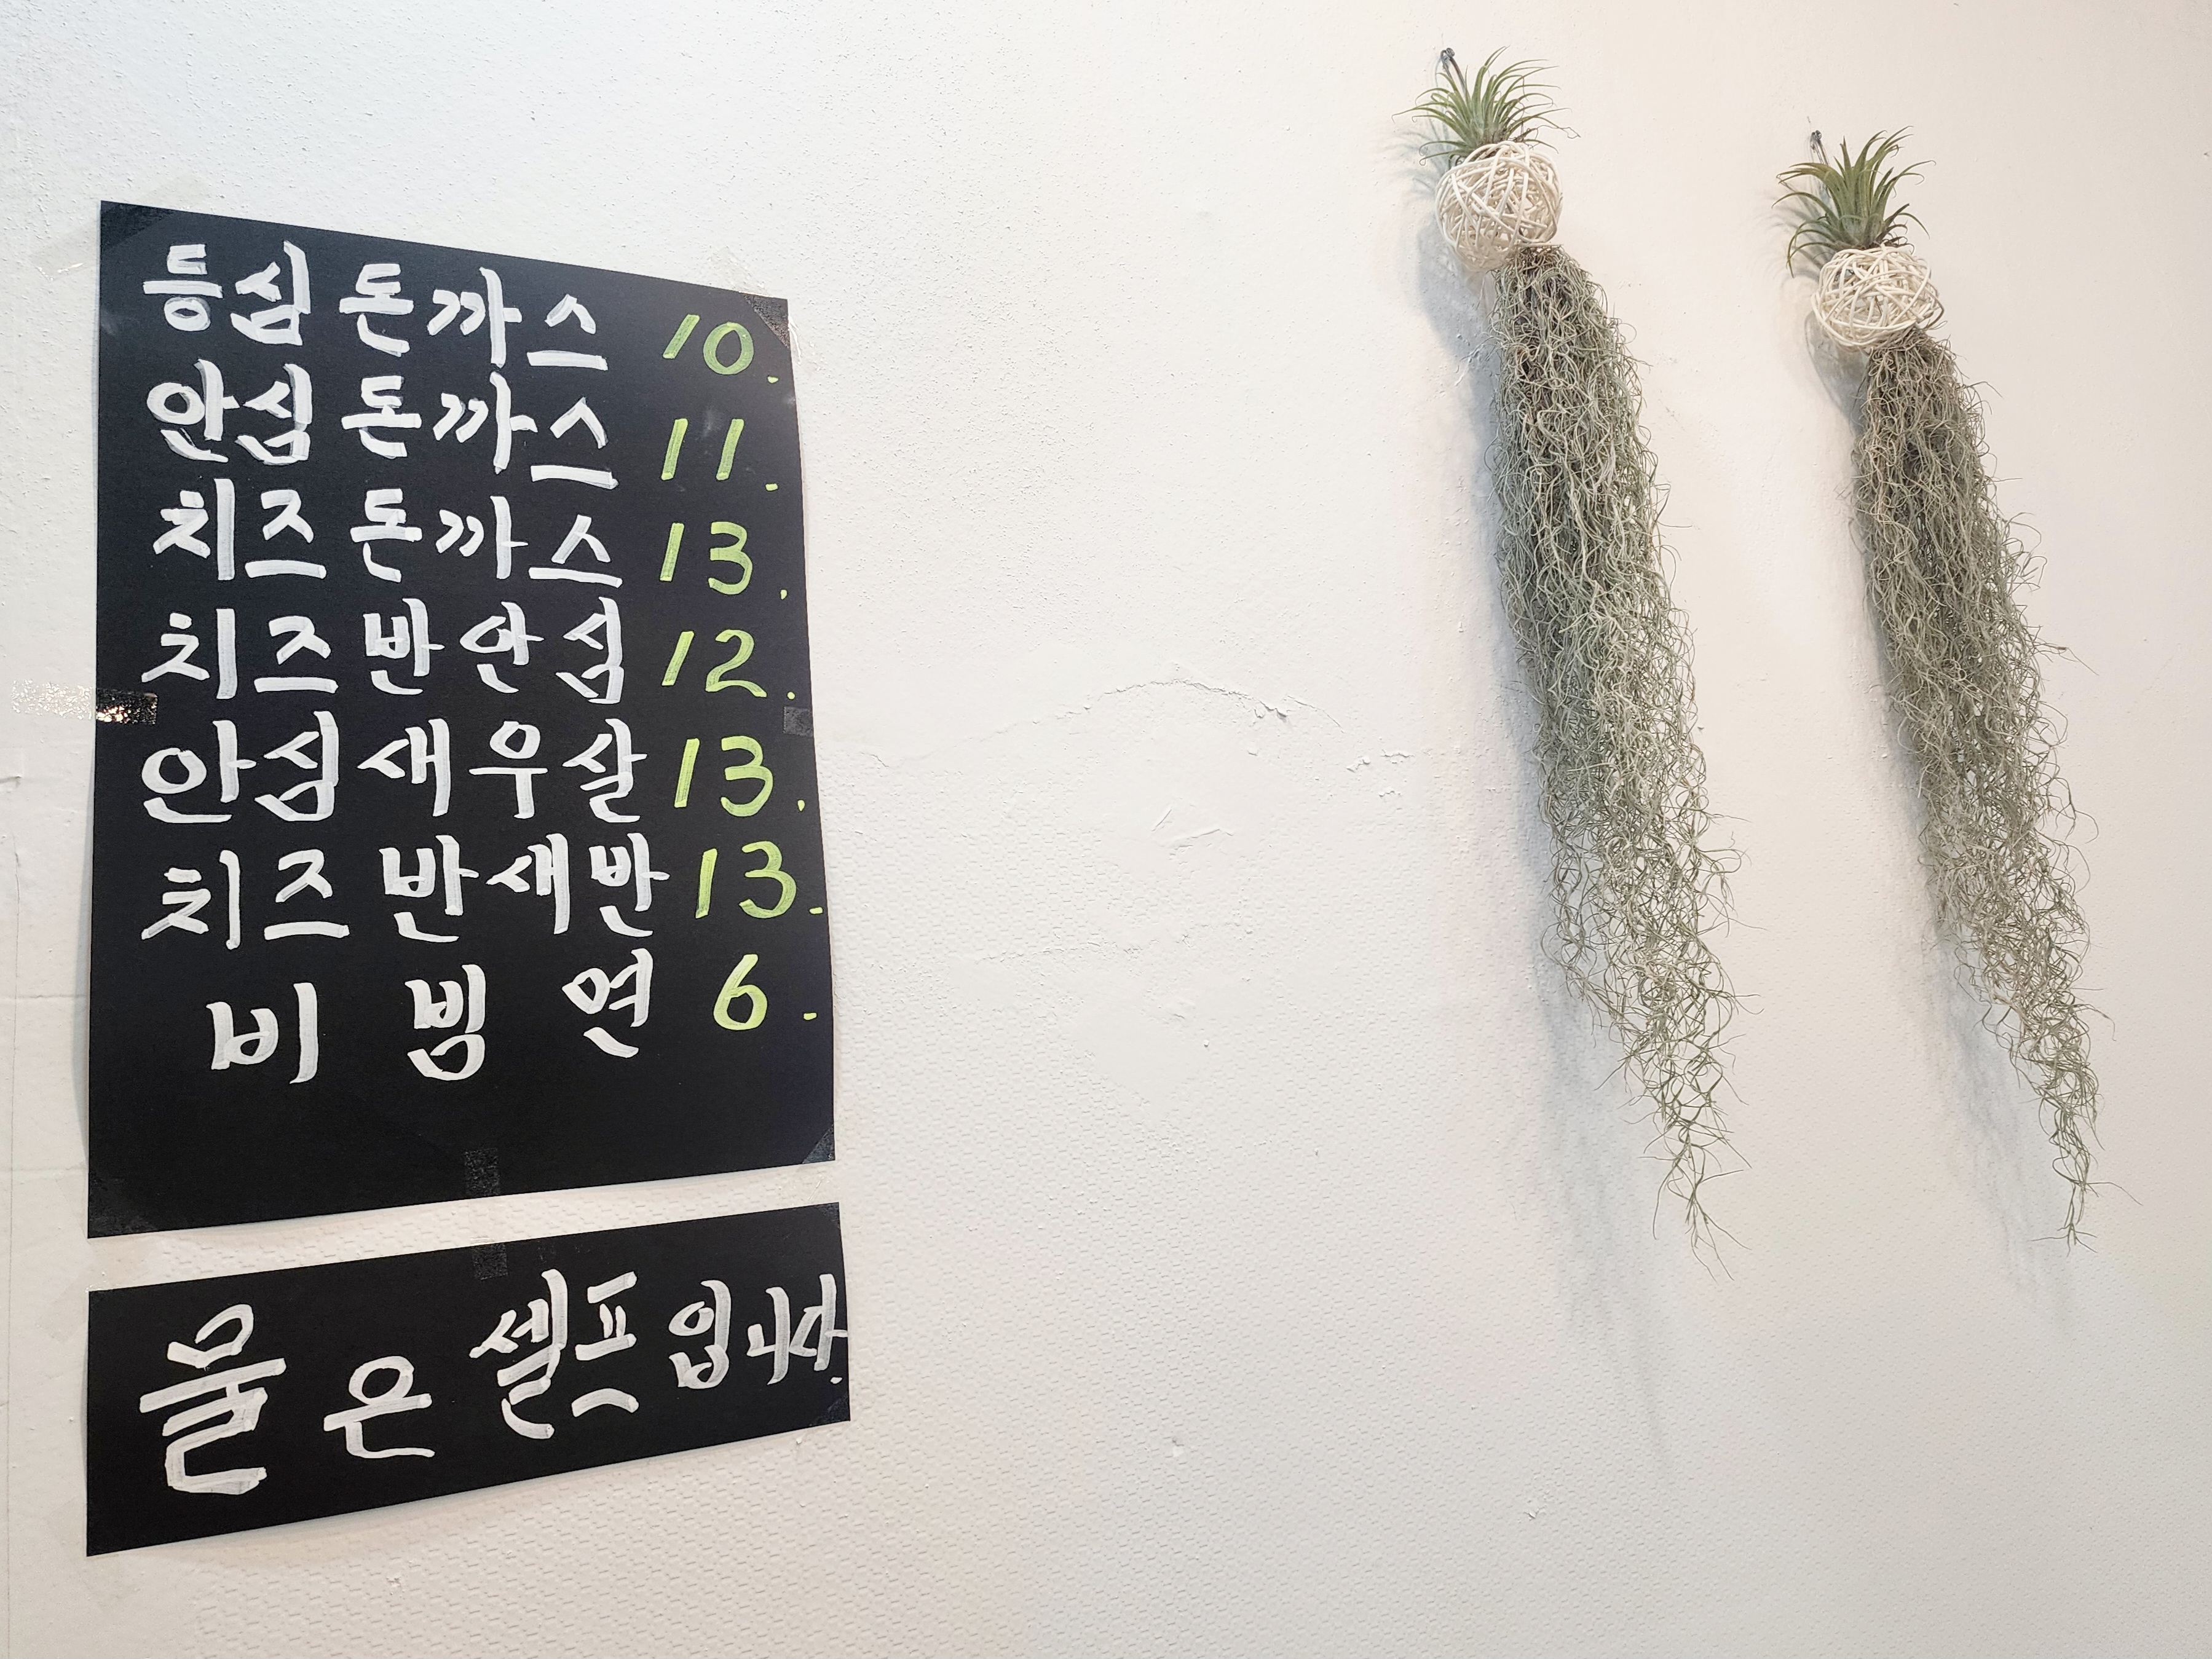 등심 돈까스 10.
안심 돈까스 11.
치즈 돈까스 13.
치즈 반 안심 12.
안심새우살 13.
치즈 반새반 13.
비 빔 면 6.
물은 셀프입니다.